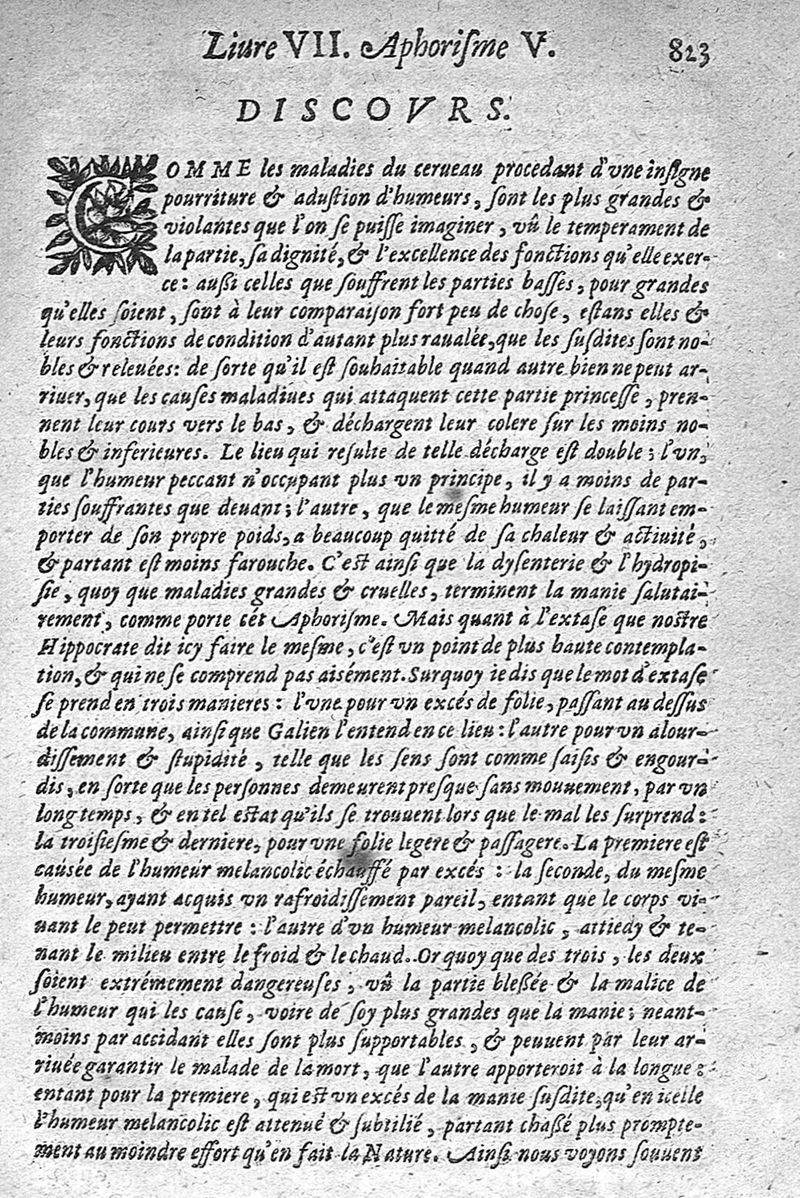 Liure VII. Aphoriſme V. 823
DISCOVRS.
COMME les maladies du cerueau procedant d'vne inſigne
pourriture & aduſtion d'humeurs, ſont les plus grandes &
violantes que l'on ſe puiſſe imaginer, vû le temperament de
la partie, ſa dignité, & l'excellence des fonctions qu'elle exer-
ce: auſſi celles que ſouffrent les parties baſſes, pour grandes
qu'elles ſoient, ſont à leur comparaiſon fort peu de choſe, eſtans elles &
leurs fonctions de condition d'autant plus raualée, que les ſuſdites ſont no-
bles & releuées: de ſorte qu'il eſt ſouhaitable quand autre bien ne peut ar-
riuer, que les cauſes maladiues qui attaquent cette partie princeſſe, pren-
nent leur cours vers le bas, & déchargent leur colere ſur les moins no-
bles & inferieures. Le lieu qui reſulte de telle décharge eſt double; l'vn,
que l'humeur peccant n'occupant plus vn principe, il y a moins de par-
ties ſouffrantes que deuant; l'autre, que le meſme humeur ſe laiſſant em-
porter de ſon propre poids, a beaucoup quitté de ſa chaleur & actiuité,
& partant eſt moins farouche. C'eſt ainſi que la dyſenterie & l'hydropi-
ſie, quoy que maladies grandes & cruelles, terminent la manie ſalutai-
rement, comme porte cét Aphoriſme. Mais quant à l'extaſe que noſtre
Hippocrate dit icy faire le meſme, c'eſt vn point de plus haute contempla-
tion, & qui ne ſe comprend pas aiſément. Surquoy ie dis que le mot d'extaſe
ſe prend en trois manieres: l'vne pour vn excés de folie, paſſant au deſſus
de la commune, ainſi que Galien l'entend en ce lieu: l'autre pour vn alour-
diſſement & ſtupidité, telle que les ſens ſont comme ſaiſis & engour-
dis, en ſorte que les perſonnes demeurent preſque ſans mouuement, par vn
long temps, & en tel eſtat qu'ils ſe trouuent lors que le mal les ſurprend:
la troiſieſme & derniere, pour vne folie legere & paſſagere. La premiere eſt
cauſée de l'humeur melancolic échauffé par excés: la ſeconde, du meſme
humeur, ayant acquis vn rafroidiſſement pareil, entant que le corps vi-
uant le peut permettre: l'autre d'vn humeur melancolic, attiedy & te-
nant le milieu entre le froid & le chaud. Or quoy que des trois, les deux
ſoient extrémement dangereuſes, vû la partie bleßée & la malice de
l'humeur qui les cauſe, voire de ſoy plus grandes que la manie; neant-
moins par accidant elles ſont plus ſupportables, & peuuent par leur ar-
riuée garantir le malade de la mort, que l'autre apporteroit à la longue:
entant pour la premiere, qui eſt vn excés de la manie ſuſdite, qu'en icelle
l'humeur melancolic eſt attenué & ſubtilié, partant chaßé plus prompte-
ment au moindre effort qu'en fait la Nature. Ainſi nous voyons ſouuent